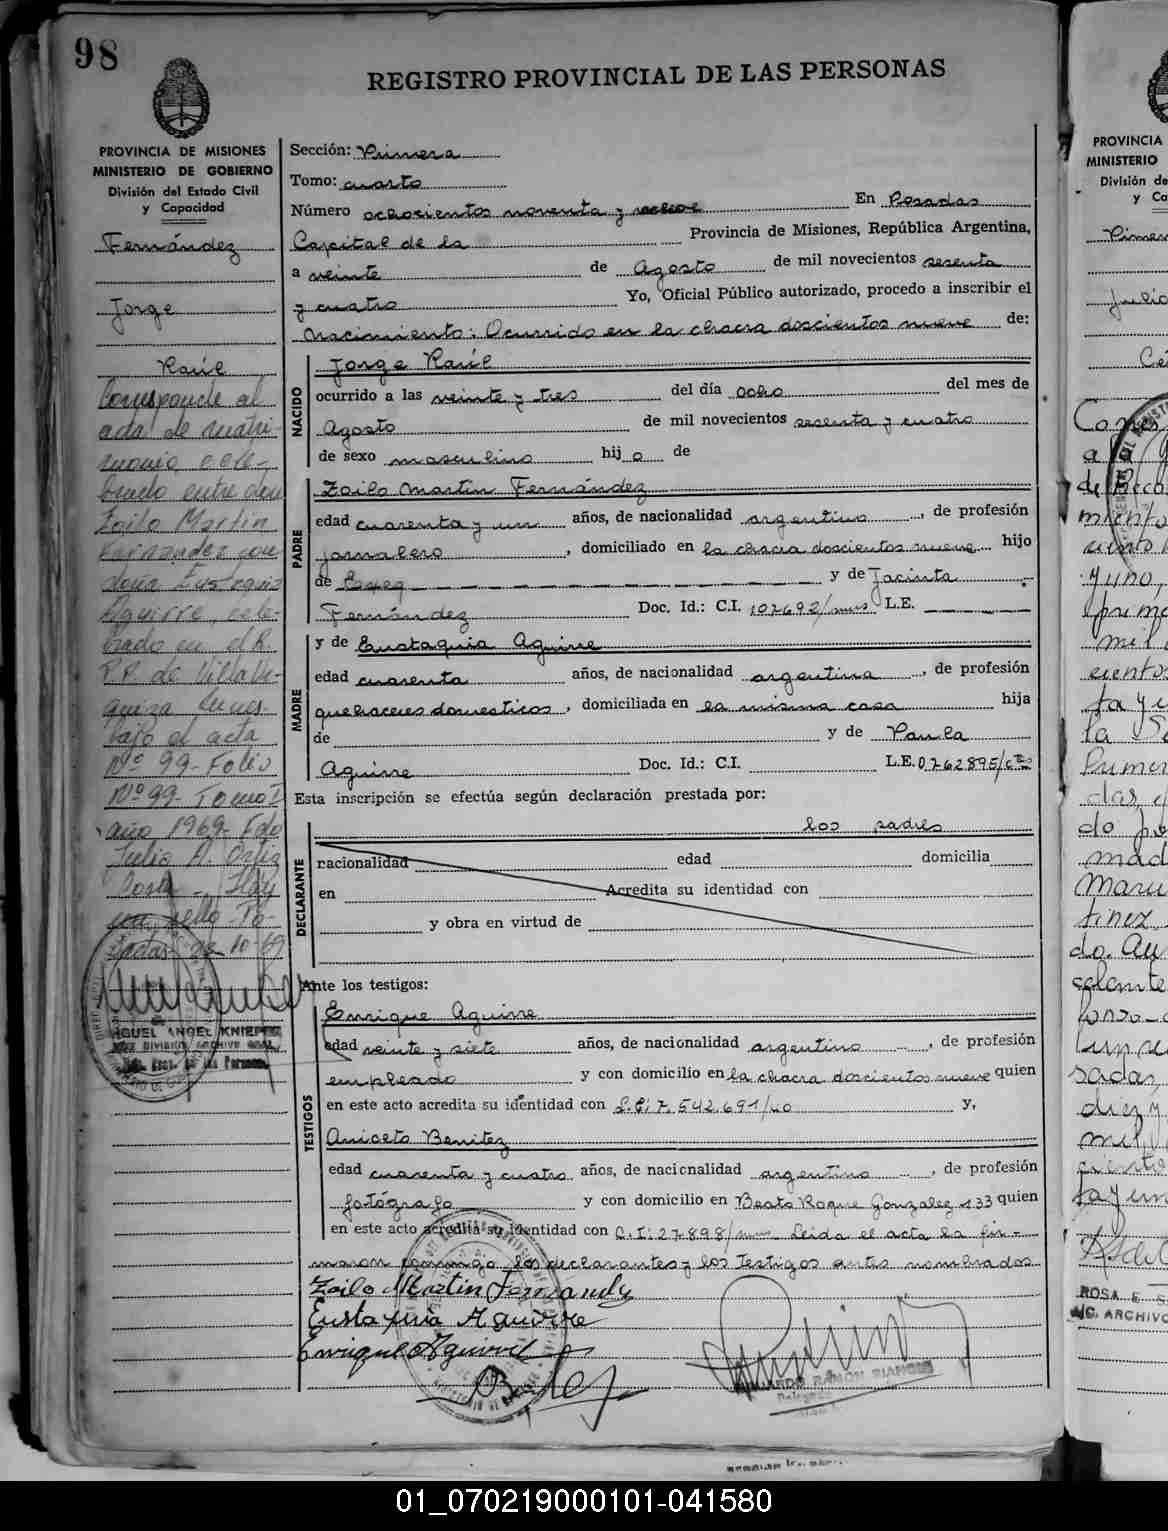 98
REGISTRO PROVINCIAL DE LAS PERSONAS
PROVINCIA DE MISIONES
MINISTERIO DE GOBIERNO
División del Estado Civil
y Capacidad
Fernández
Jorge
Raúl
Corresponde al
acta de matri-
monio cele-
brado entre don
Zoilo Martin
Fernandez con
doña Eustaquia
Aguirre, cele-
brado en el R.
P.P. de Villa
bajo el acta
Nº 99- Folio
Nº 99- Tomo I
año 1969- Fdo
Julio A. Ortiz
Costa - Hay
un sello - Po-
sadas 10-69
MIGUEL ANGEL KNIEPP
JEFE DIVISION ARCHIVO GRAL
Sección: Primera
Tomo: cuarto
Número ochocientos noventa y En Posadas
Capital de la Provincia de Misiones, República Argentina,
a veinte de Agosto de mil novecientos sesenta
y cuatro Yo, Oficial Público autorizado, procedo a inscribir el
nacimiento: Ocurrido en la chacra doscientos nueve de:
NACIDO
Jorge Raúl
ocurrido a las veinte y tres del día ocho del mes de
Agosto de mil novecientos sesenta y cuatro
de sexo masculino hij o de
PADRE
Zoilo Martin Fernández
edad cuarenta y un años, de nacionalidad argentino, de profesión
jornalero, domiciliado en la chacra doscientos nueve hijo
de y de Jacinta
Fernández Doc. Id.: C.I. 107692/mns L.E.
MADRE
y de Eustaquia Aguirre
edad cuarenta años, de nacionalidad argentina, de profesión
quehaceres domesticos, domiciliada en la misma casa hija
de y de Paula
Aguirre Doc. Id.: C.I. L.E. 0762895/cts
Esta inscripción se efectúa según declaración prestada por:
DECLARANTE
los padres
nacionalidad edad domicilia
en Acredita su identidad con
y obra en virtud de
Ante los testigos:
TESTIGOS
Enrique Aguirre
edad veinte y siete años, de nacionalidad argentino, de profesión
empleado y con domicilio en la chacra doscientos nueve quien
en este acto acredita su identidad con 7.542.691 y,
Aniceto Benitez
edad cuarenta y cuatro años, de nacionalidad argentino, de profesión
fotógrafo y con domicilio en Beato Roque Gonzalez 133 quien
en este acto acredita su identidad con C.I: 27898/mns Leida el acta la fir-
maron los declarantes y los testigos antes nombrados
Zoilo Martin Fernandez
Eustaquia Aguirre
Enrique Aguirre
RAMON
Delegado
PROVINCIA
MINISTERIO
División de
y Ca
Julio
a
mil
la
Primer
do
mad
tinez
do.
sadas,
diez y
mil
ROSA E. S
ARCHIVO
01_070219000101-041580